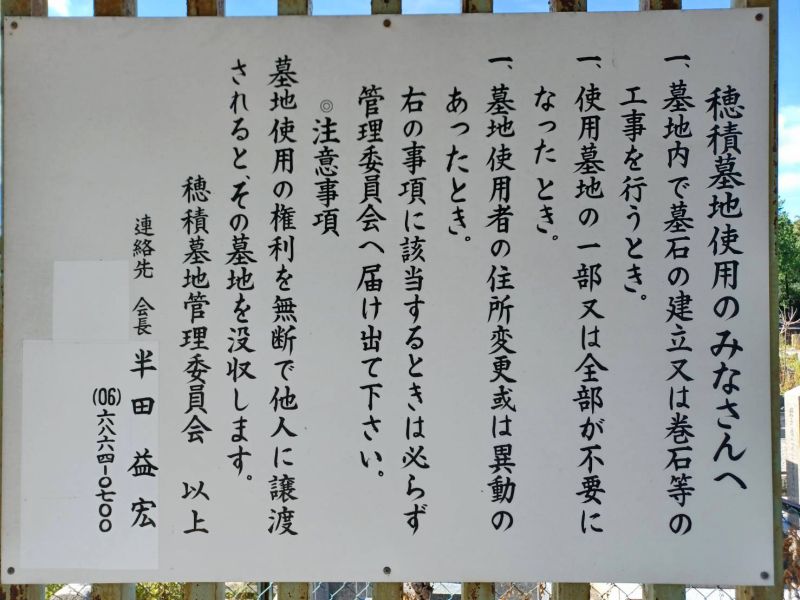 穂積墓地使用のみなさんへ
一、墓地内で墓石の建立又は巻石等の
工事を行うとき。
一、使用墓地の一部又は全部が不要に
なったとき。
一、墓地使用者の住所変更或は異動の
あったとき。
右の事項に該当するときは必らず
管理委員会へ届け出て下さい。
◎注意事項
墓地使用の権利を無断で他人に譲渡
されると、その墓地を没収します。
穂積墓地管理委員会 以上
連絡先 会長 半田益宏
(06)六八六四-0七00